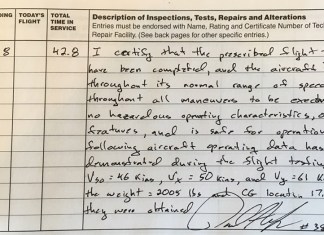 DING TODAY'S FLIGHT TOTAL TIME IN SERVICE Description of Inspections, Tests, Repairs and Alterations
Entries must be endorsed with Name, Rating and Certificate Number of Tec
Repair Facility. (See back pages for other specific entries.)
8 42.8 I certify that the prescribed flight
have been completed, and the aircraft
throughout its normal range of speed
throughout all maneuvers to be execu
no hazardous operating characteristics, o
features, and is safe for operation
following aircraft operating data has
demonstrated during the flight testing
Vso = 46 Kias, Vx = 50 Kias, and Vy = 61 K
the weight = 2005 lbs and CG location 17.
they were obtained